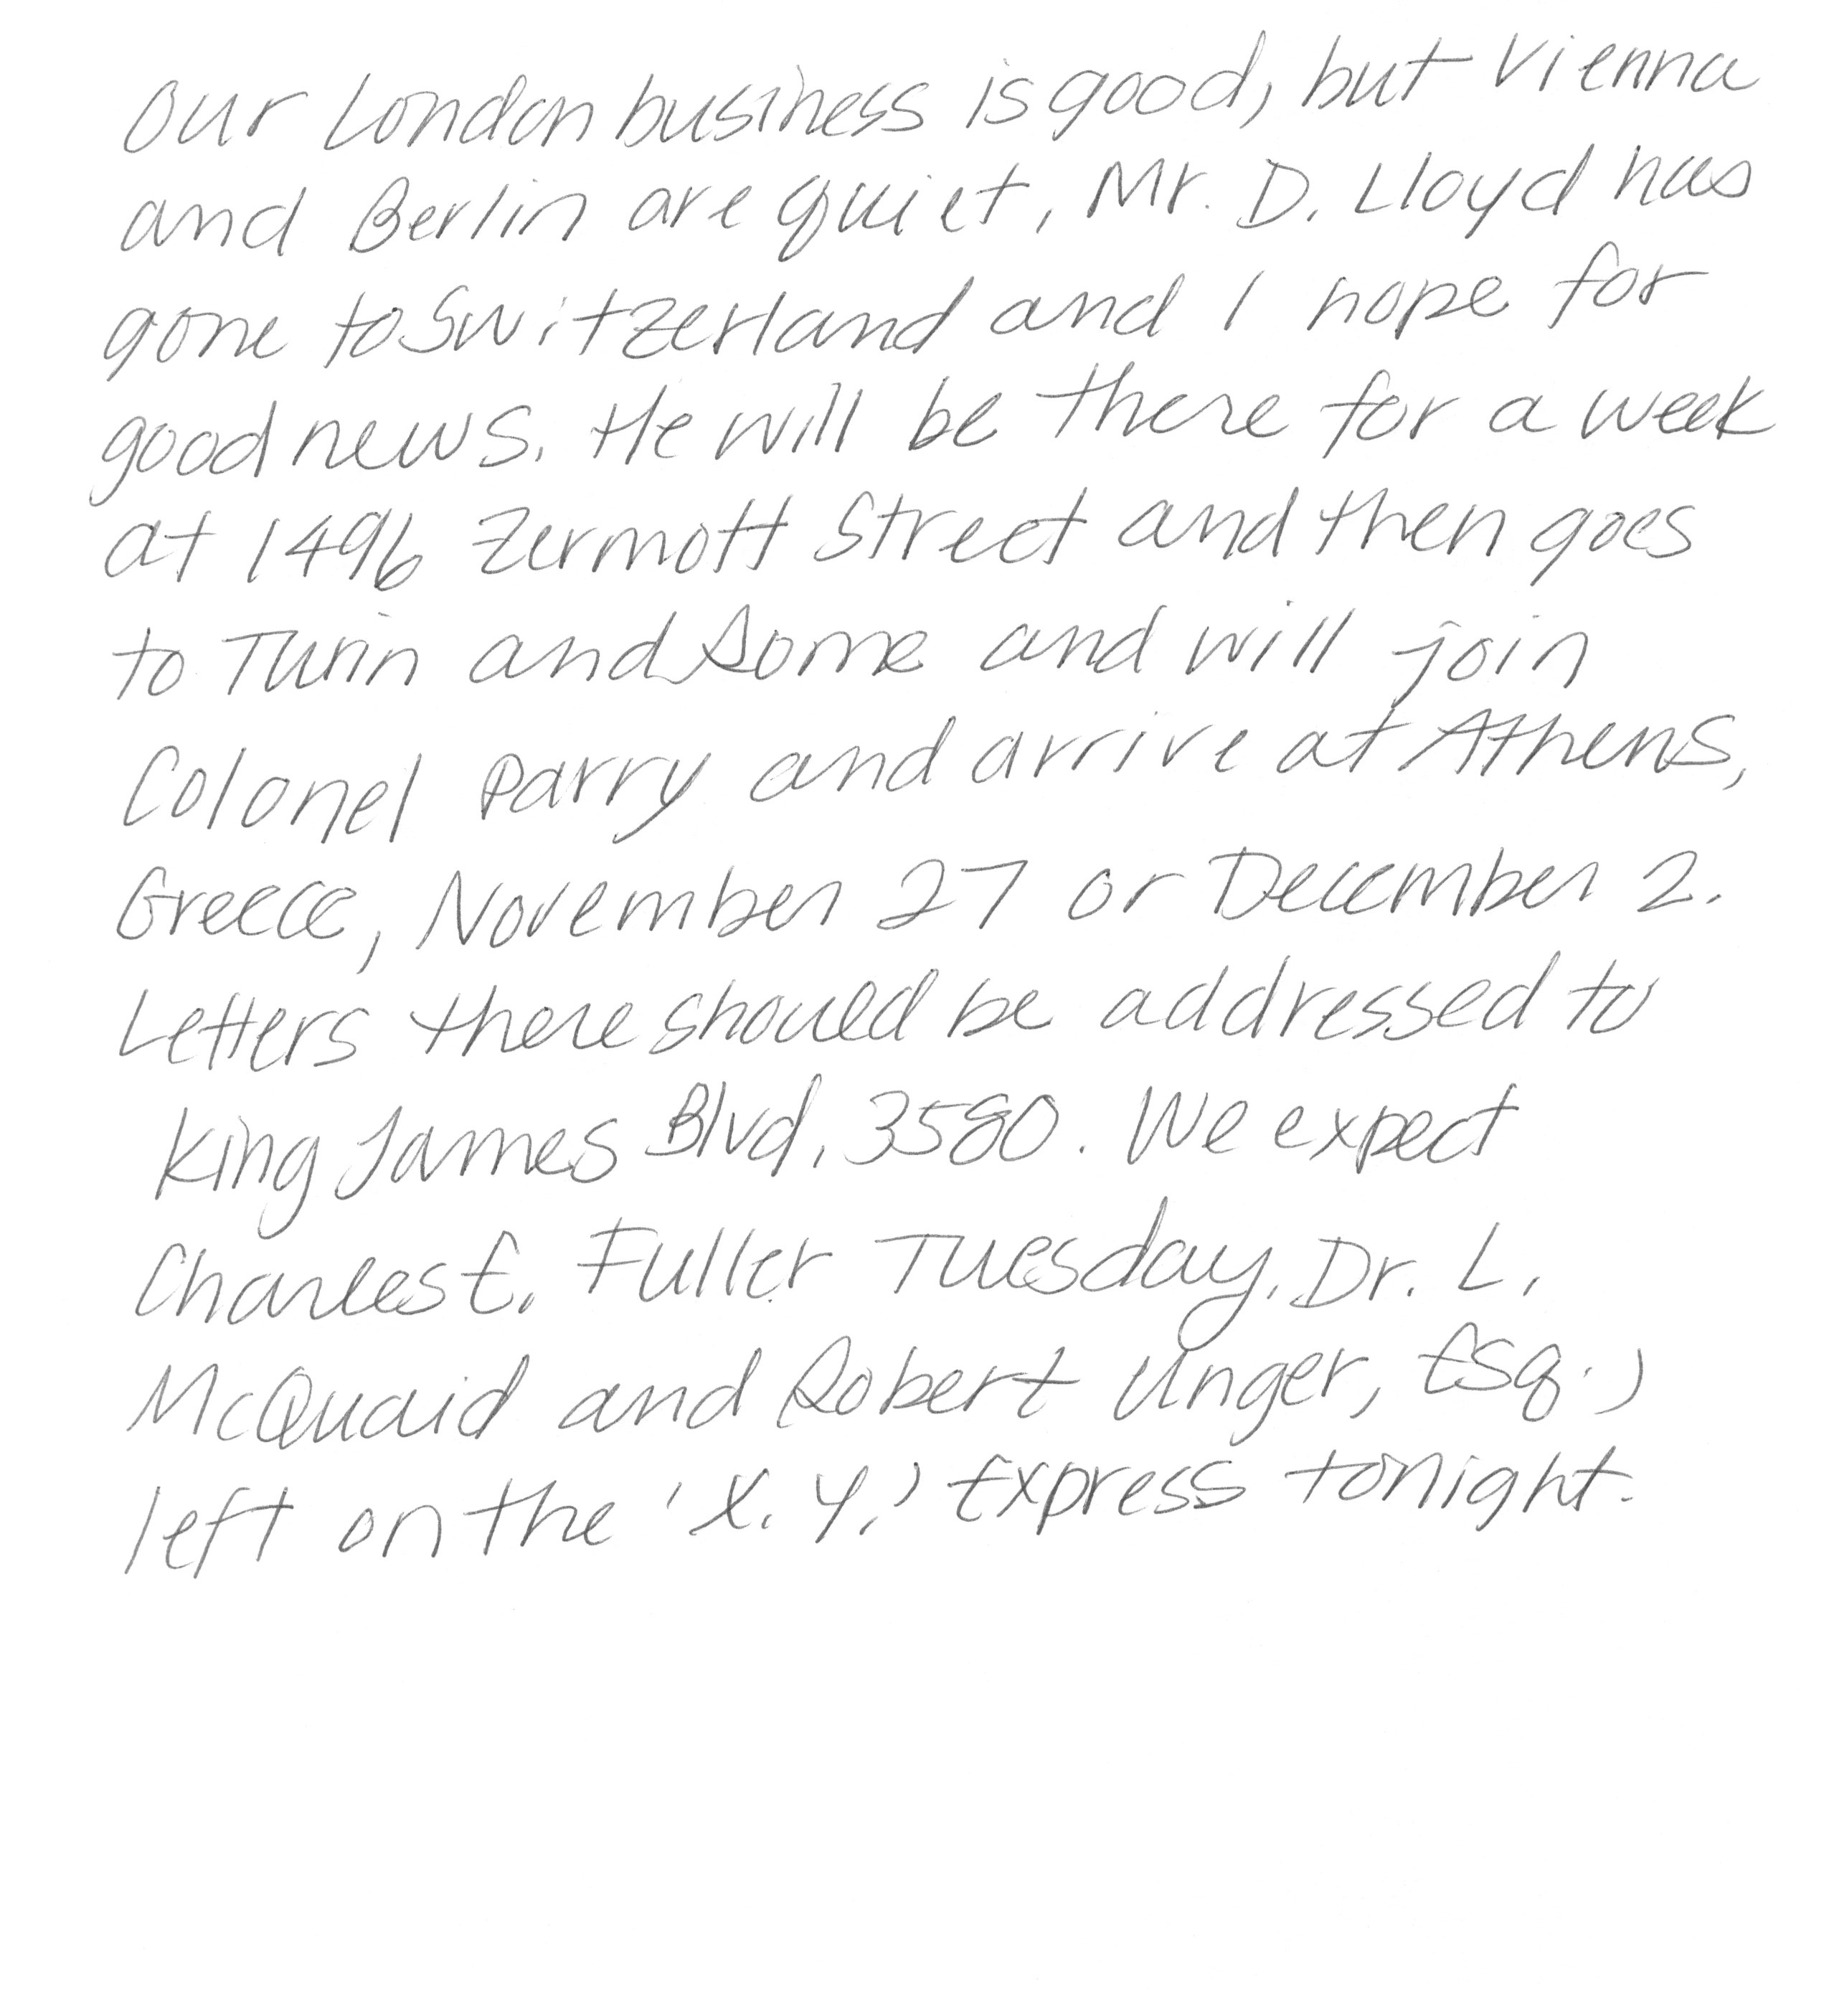 Our London business is good, but Vienna
and Berlin are quiet. Mr. D. Lloyd has
gone to Switzerland and I hope for
good news. He will be there for a week
at 1496 Zermott Street and then goes
to Turin and Rome and will join
Colonel Parry and arrive at Athens,
Greece, November 27 or December 2.
Letters there should be addressed to
King James Blvd. 3580. We expect
Charles E. Fuller Tuesday. Dr. L.
McQuaid and Robert Unger, Esq.,
left on the 'X. Y.' Express tonight.